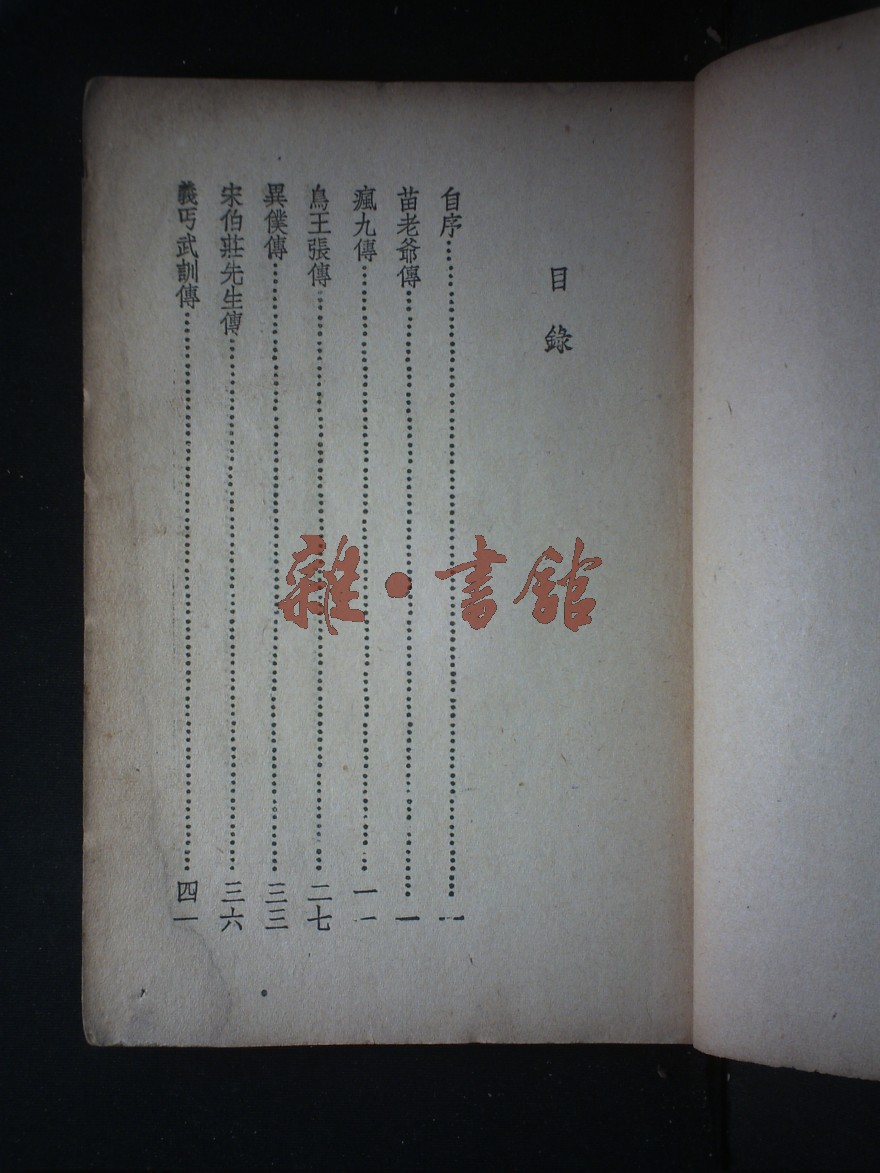 目錄
自序……一
苗老爺傳……一
瘋九傳……一一
鳥王張傳……二七
異僕傳……三三
宋伯莊先生傳……三六
義丐武訓傳……四一
雜·書館